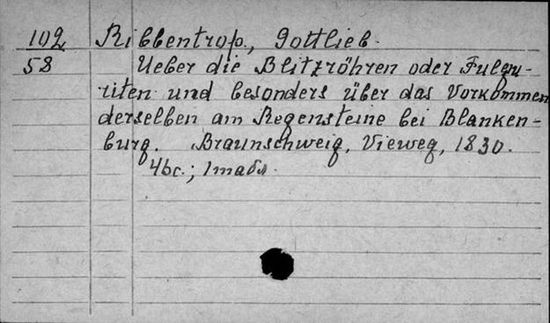 102 Ribbentrop, Gottlieb.
58 Ueber die Blitzröhren oder Fulgu-
riten und besonders über das Vorkommen
derselben am Regensteine bei Blanken-
burg. Braunschweig, Vieweg, 1830.
4bc.;